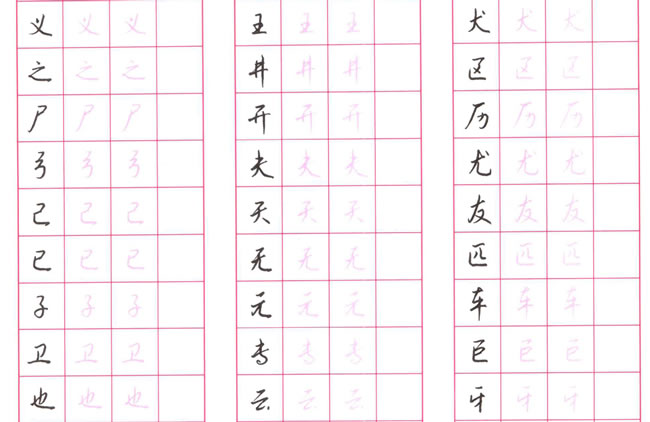 义 义 义
之 之 之
尸 尸 尸
弓 弓 弓
己 己 己
已 已 已
子 子 子
卫 卫 卫
也 也 也
王 王 王
井 井 井
开 开 开
夫 夫 夫
天 天 天
无 无 无
元 元 元
专 专 专
云 云 云
犬 犬 犬
区 区 区
历 历 历
尤 尤 尤
友 友 友
匹 匹 匹
车 车 车
巨 巨 巨
牙 牙 牙